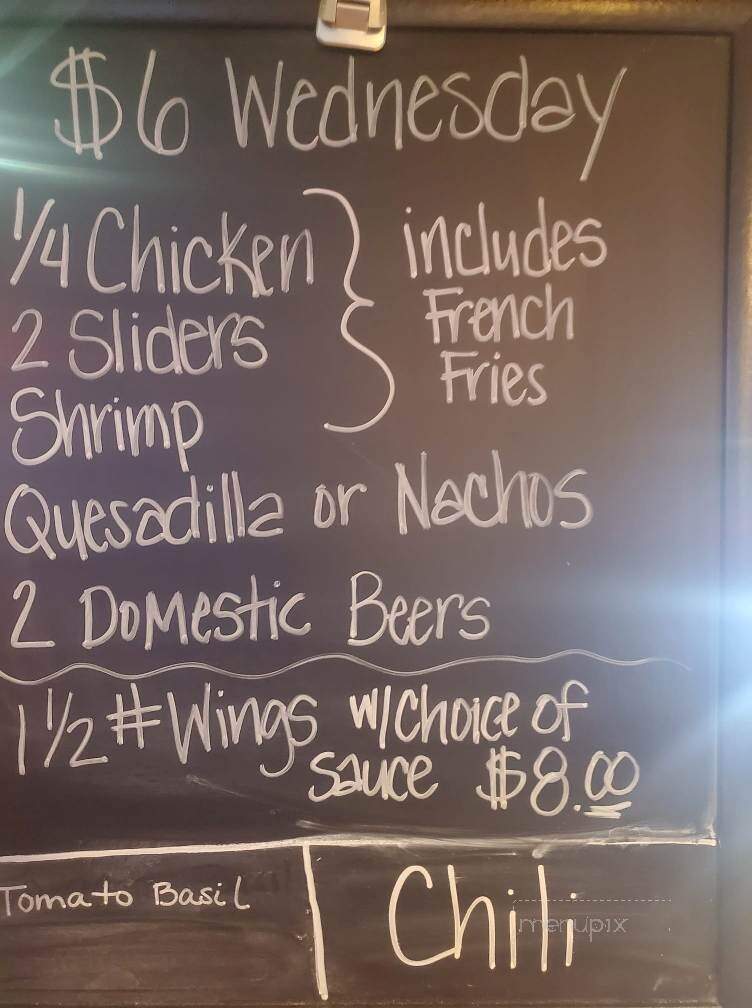 $6 Wednesday
1/4 Chicken
2 Sliders
Shrimp
includes
French
Fries
Quesadilla or Nachos
2 Domestic Beers
1 1/2 # Wings w/choice of
sauce $8.00
Tomato Basil
Chili
menupix